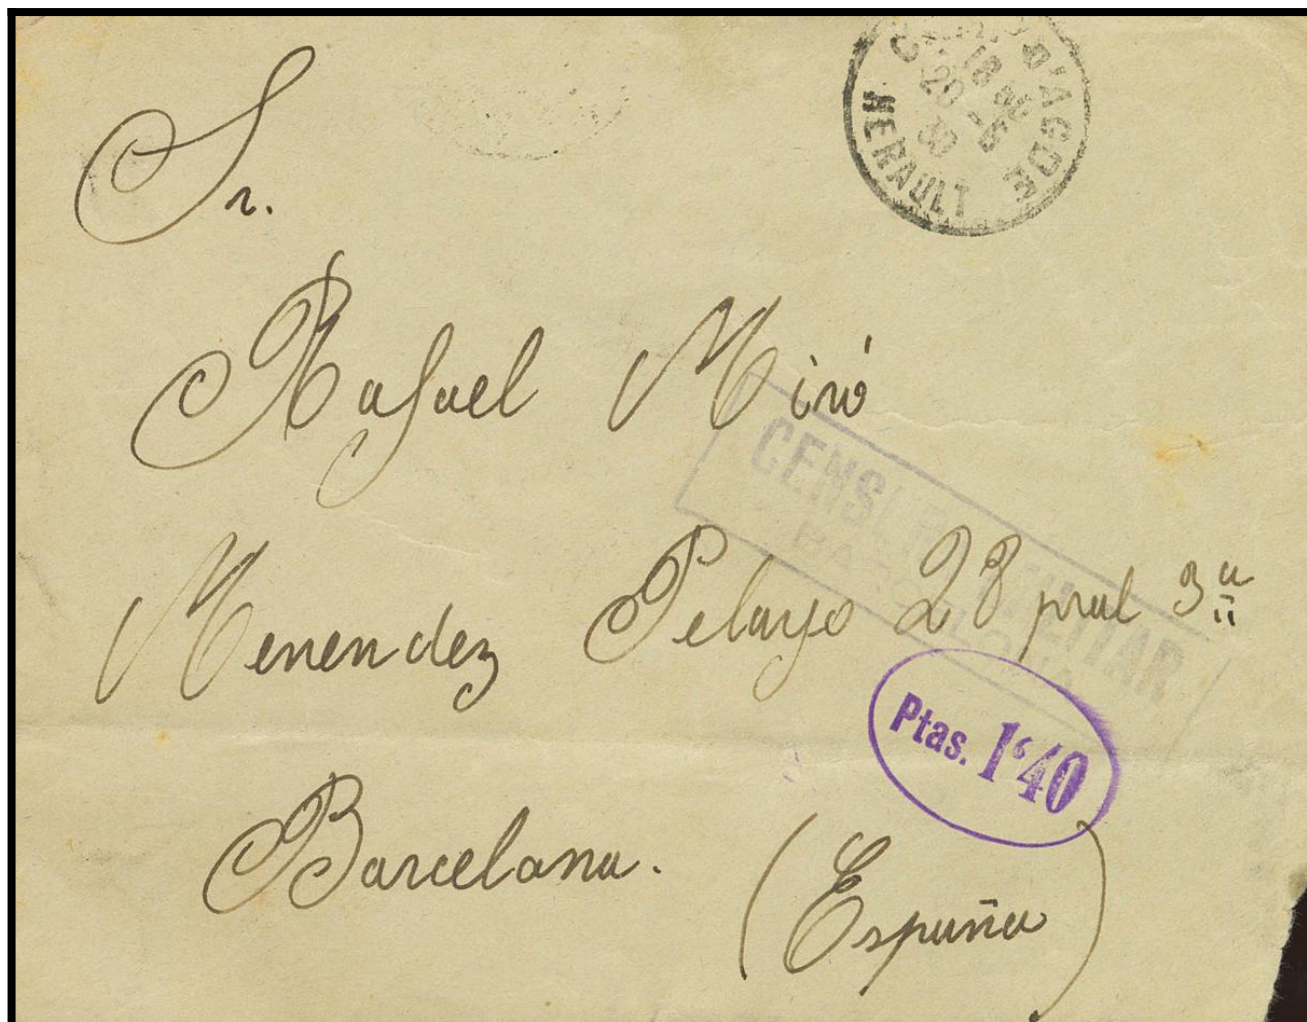 CAMP D'AGDE
18 20 -6 39
HERAULT
Sr.
Rafael Miró
CENSURA MILITAR
BARCELONA
Menendez Pelayo 28 pral 3ª
Ptas. 1'40
Barcelona.
(España)